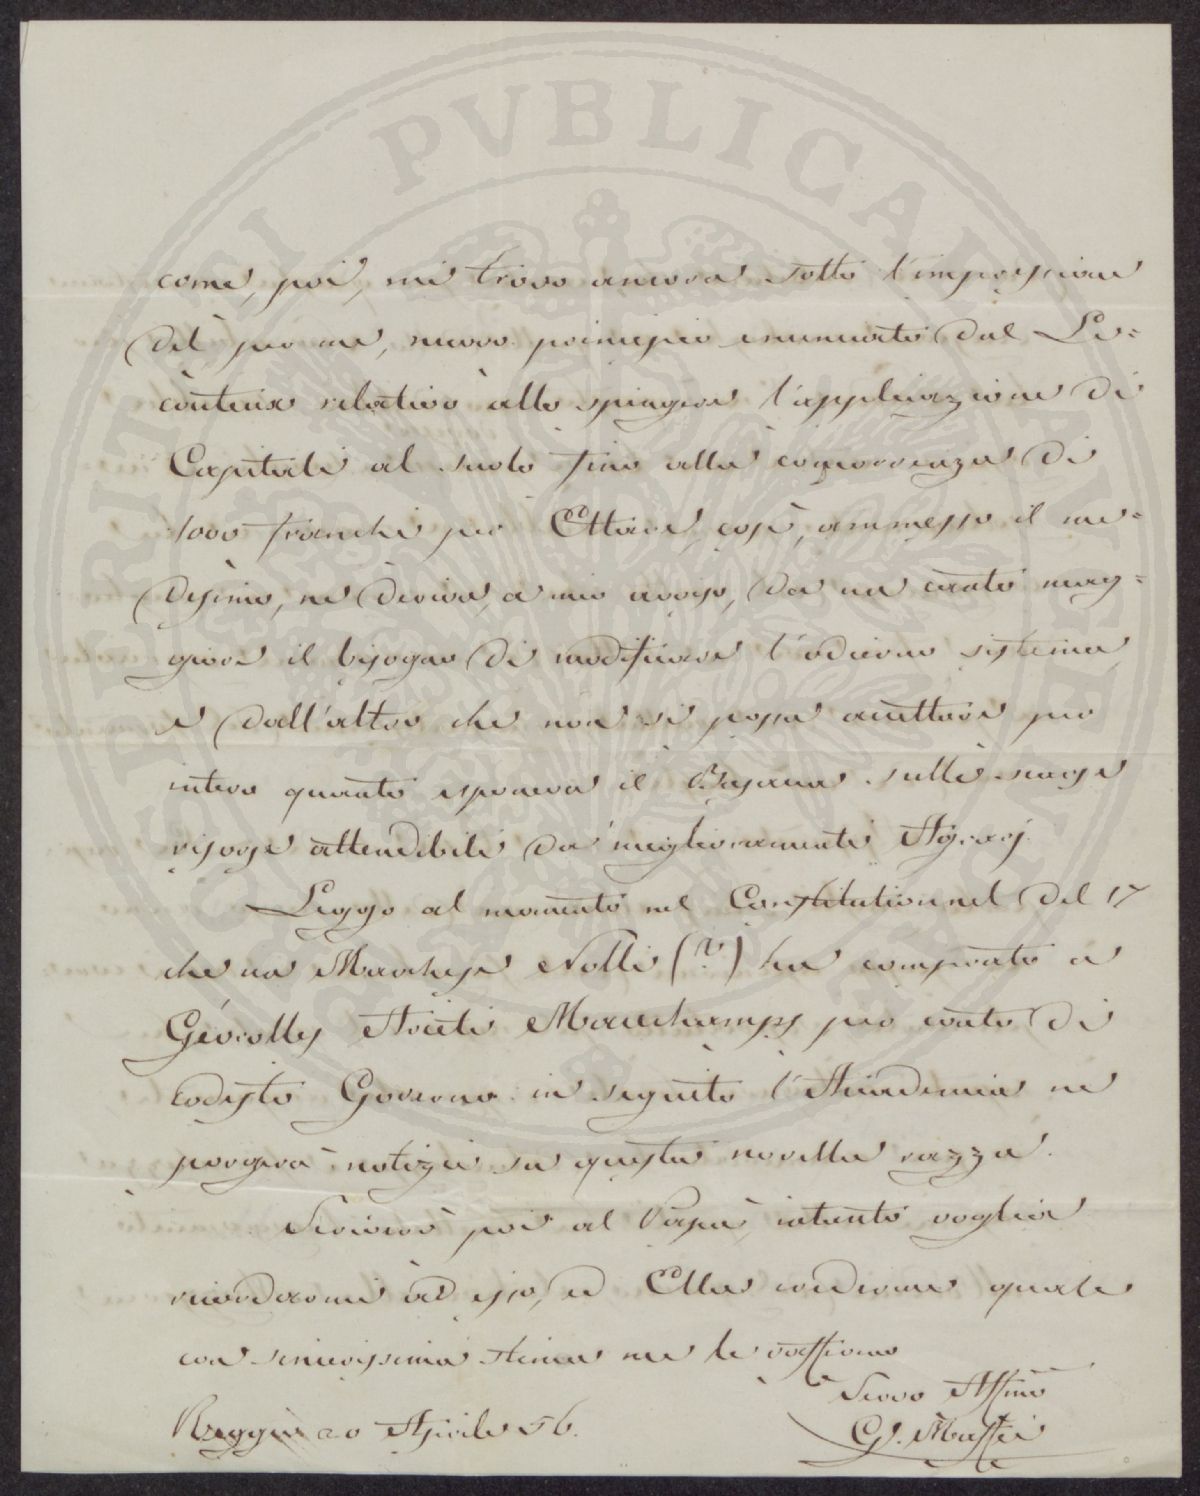 come, poi, mi trovo ancora sotto l'impressione
del per me, nuovo principio enunciato dal Le=
couteux relativo allo spingere l'applicazione di
Capitali al suolo fino alla concorrenza di
1000 franchi per Ettare, così, ammesso il me=
desimo, ne deriva, a mio avviso, da un canto mag=
giore il bisogno di modificare l'odierno sistema,
e dall'altro che non si possa accettare per
intero quanto esponeva il sulle scarse
risorse attendibili da' miglioramenti Agrarj.
Leggo al momento nel Constitutionnel del 17
che un Marchese Nolli (?) ha comprato a
Gévrolles Arieti Mauchamps per conto di
codesto Governo: in seguito l'Accademia ne
porgerà notizie su questa novella razza.
Scriverò poi al Papa, intanto voglia
ricordarmi ad esso, ed Ella credermi quale
con sincerissima stima me le raffermo
Servo Affmo
Reggio 20 Aprile 56.
G. Maffei
PVBLICA